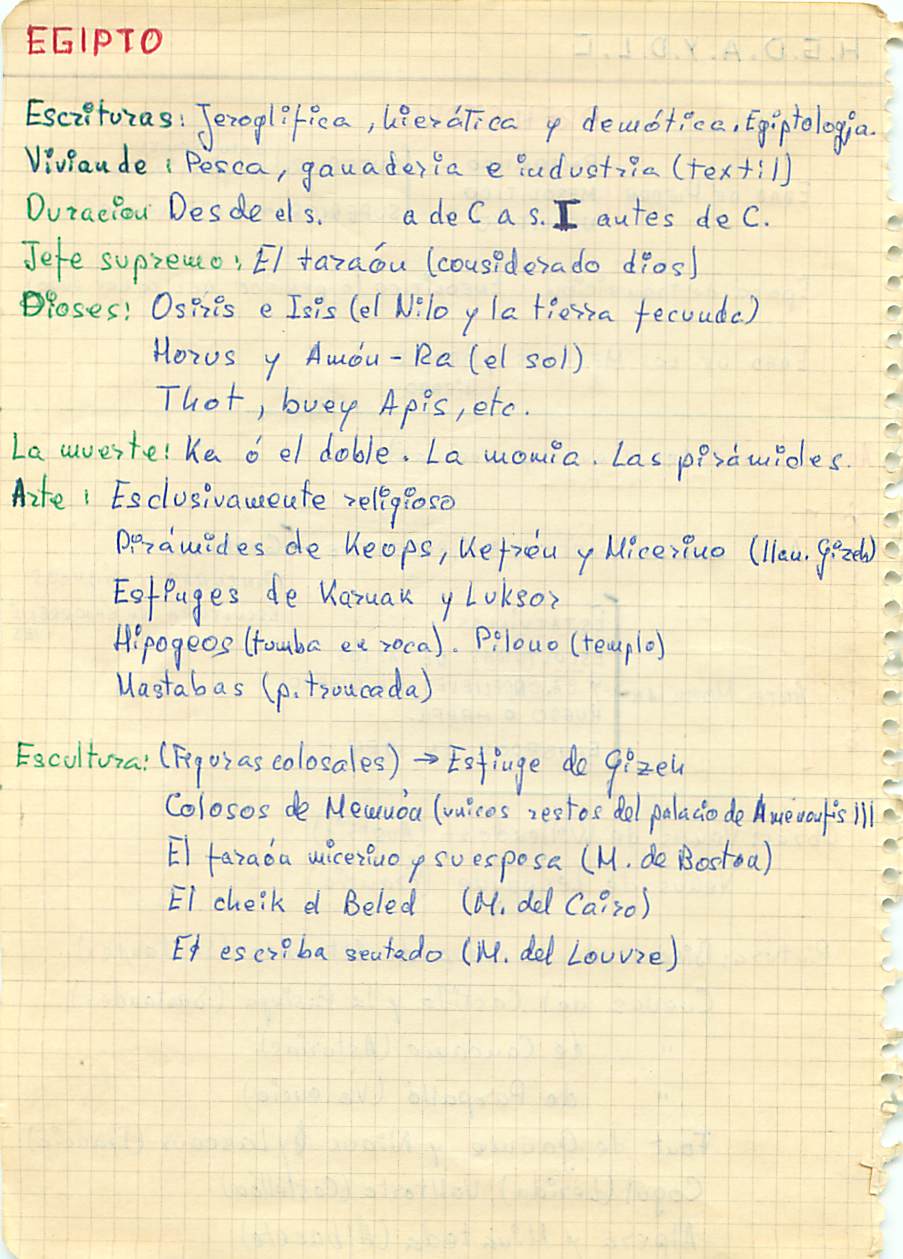 EGIPTO
Escrituras: Jeroglífica, hierática y demótica. Egiptología.
Vivian de: Pesca, ganadería e industria (textil)
Duración Desde el s. a de C a s. I antes de C.
Jefe supremo: El faraón (considerado dios)
Dioses: Osiris e Isis (el Nilo y la tierra fecunda)
Horus y Amón-Ra (el sol)
Thot, buey Apis, etc.
La muerte: Ka ó el doble. La momia. Las pirámides.
Arte: Esclusivamente religioso
Pirámides de Keops, Kefrén y Micerino (llan. Gizeh)
Esfinges de Karnak y Luksor
Hipogeos (tumba en roca). Pilono (templo)
Mastabas (p. troncada)
Escultura: (Figuras colosales) → Esfinge de Gizeh
Colosos de Memnón (unicos restos del palacio de Amenonfis III
El faraón micerino y su esposa (M. de Boston)
El cheik el Beled (M. del Cairo)
El escriba sentado (M. del Louvre)